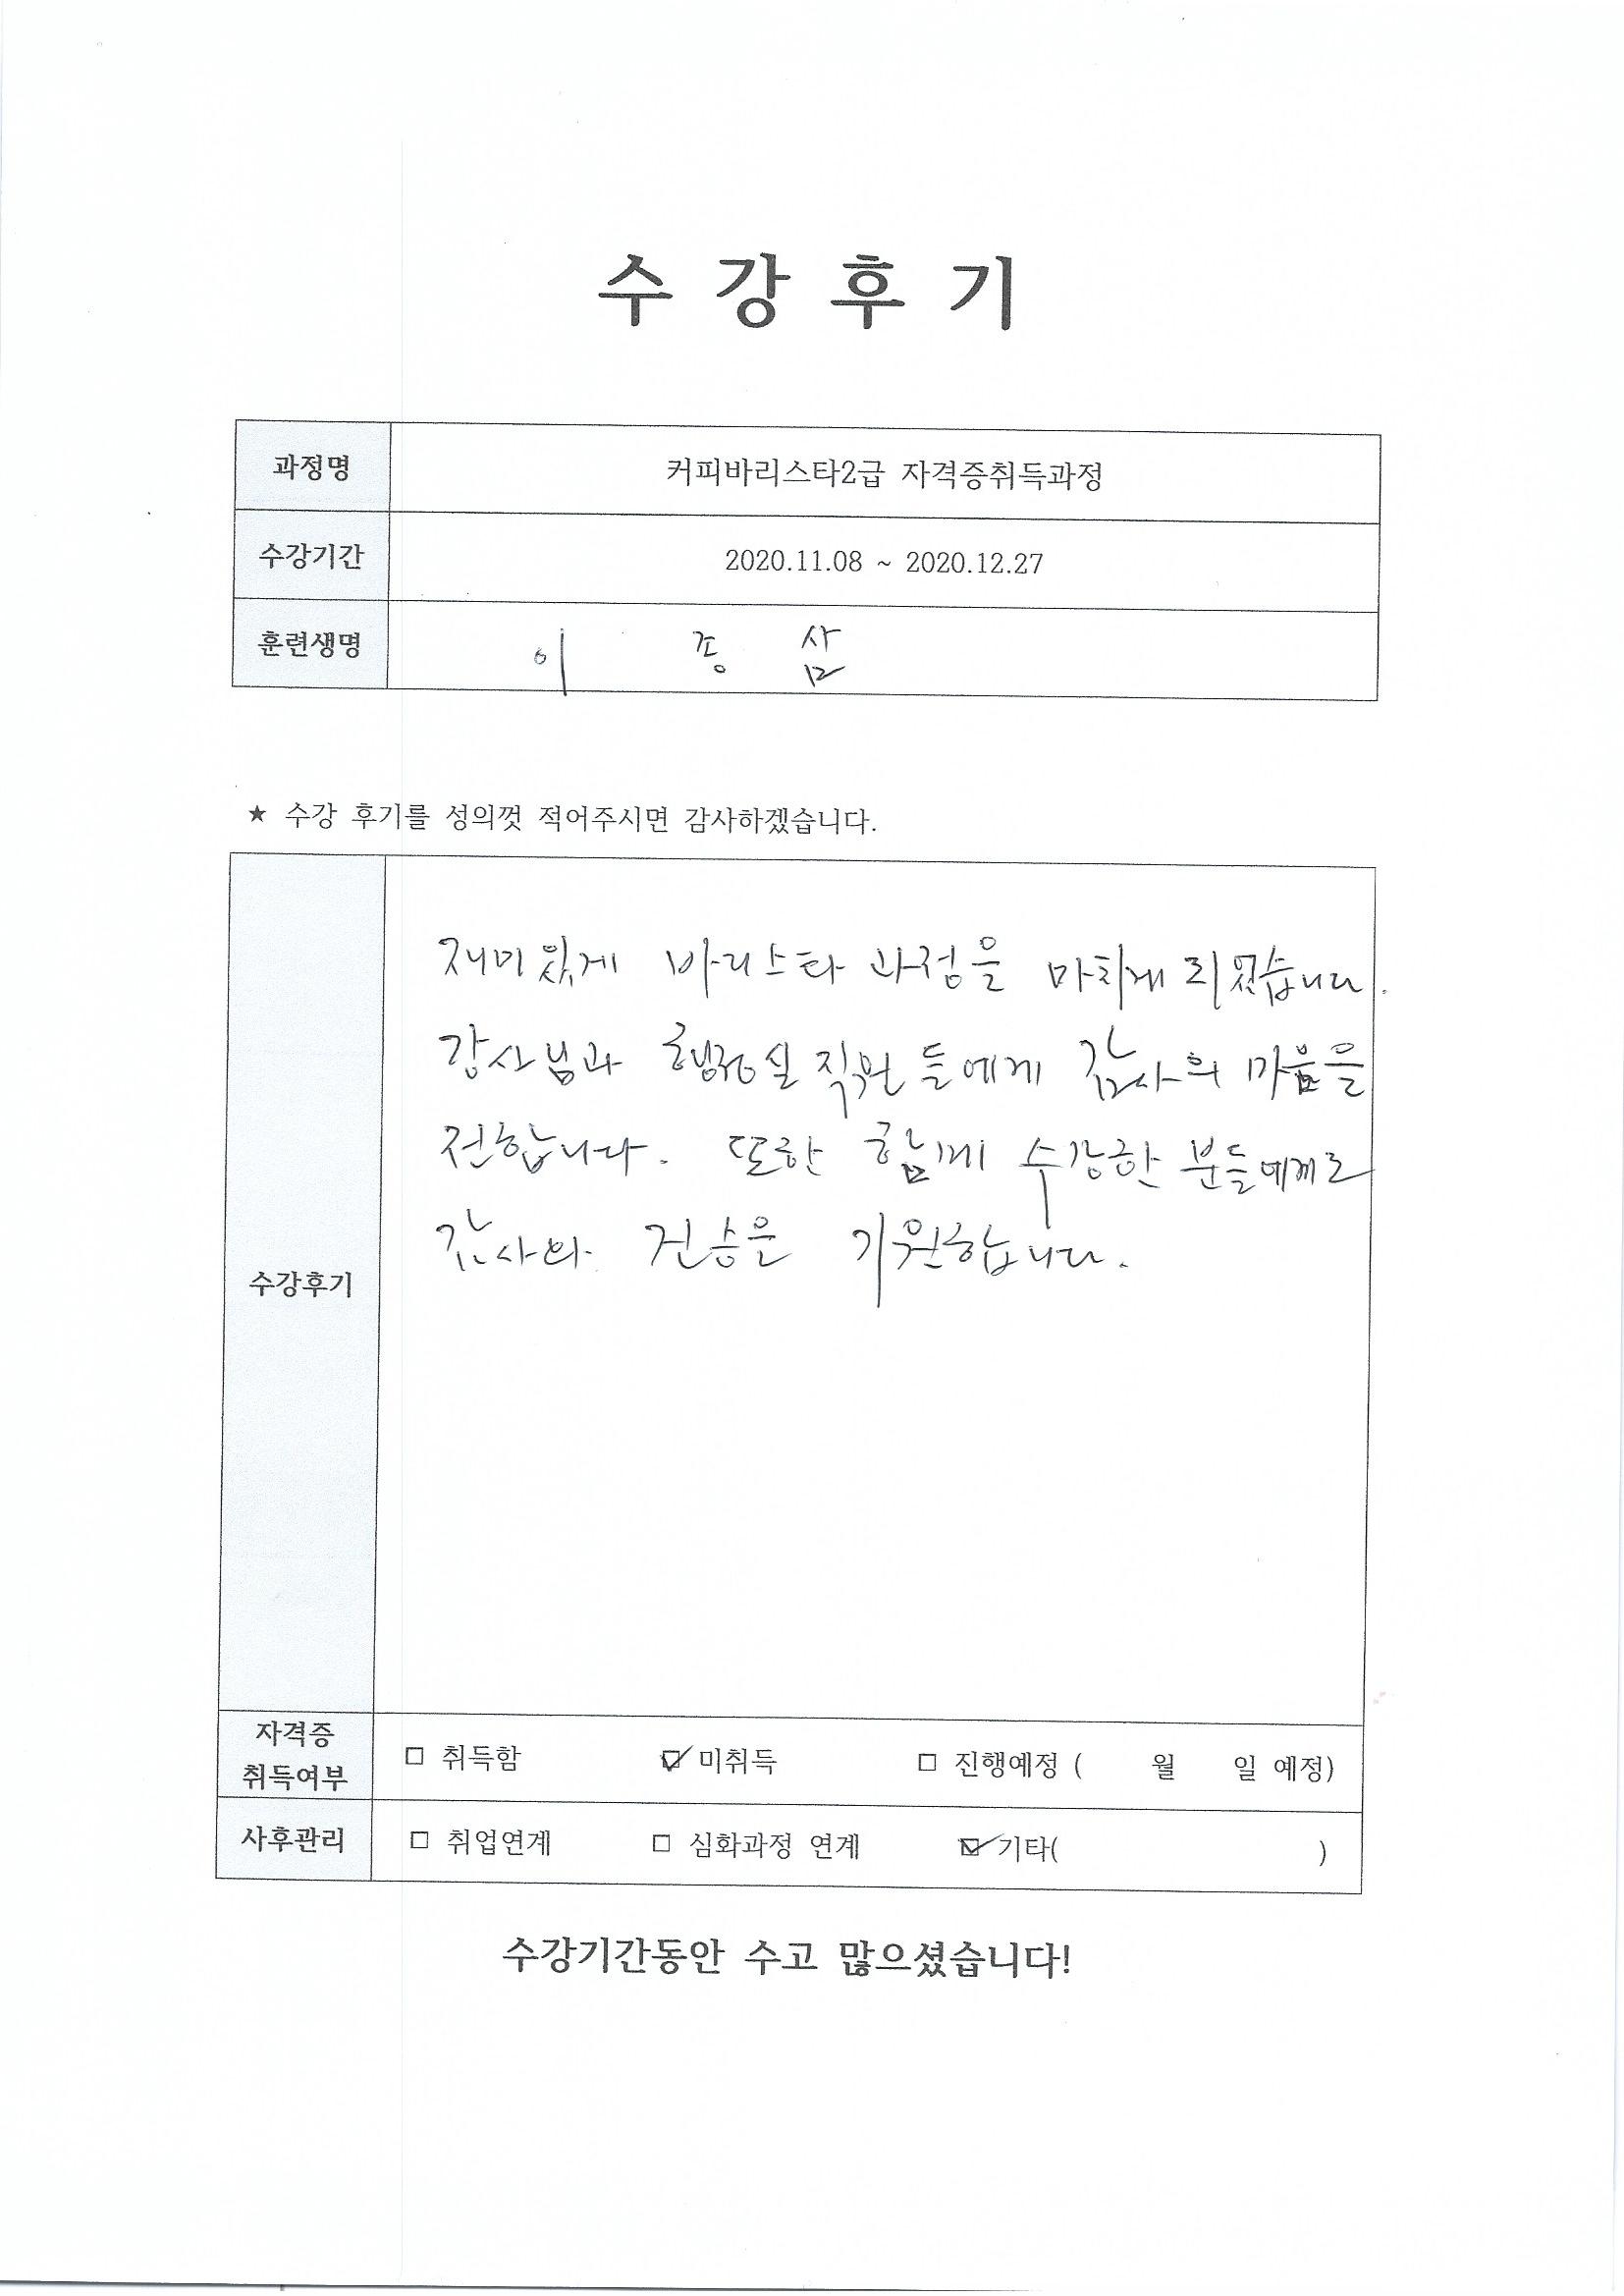 수 강 후 기
과정명 커피바리스타2급 자격증취득과정
수강기간 2020.11.08 ~ 2020.12.27
훈련생명 이 종 삼
★ 수강 후기를 성의껏 적어주시면 감사하겠습니다.
수강후기
재미있게 바리스타 과정을 마치게 되었습니다.
강사님과 행정실 직원들에게 감사의 마음을
전합니다. 또한 함께 수강한 분들에게도
감사와 건승을 기원합니다.
자격증
취득여부
□ 취득함 ☑ 미취득 □ 진행예정 ( 월 일 예정)
사후관리 □ 취업연계 □ 심화과정 연계 ☑ 기타( )
수강기간동안 수고 많으셨습니다!